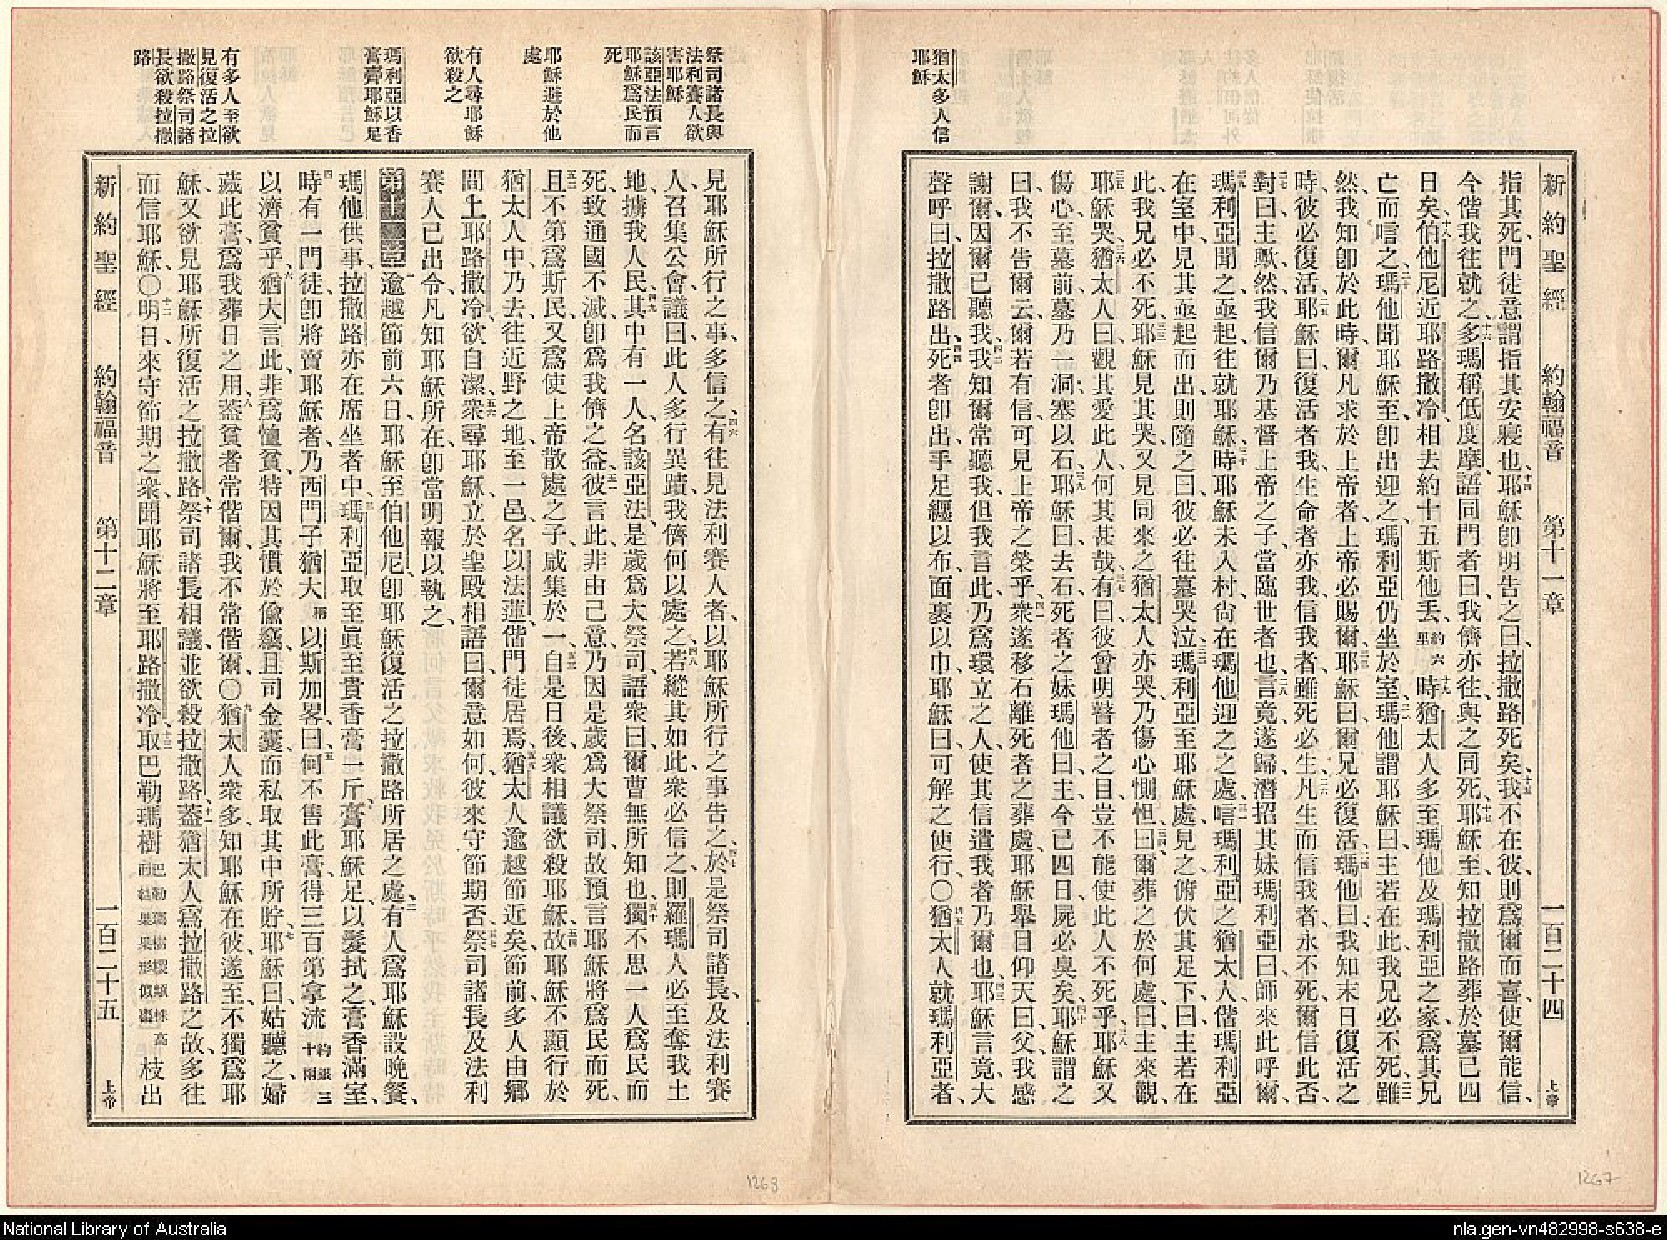 猶太多人信
耶穌
新約聖經 約翰福音 第十一章 一百二十四 上帝
指其死門徒意謂指其安寢也耶穌卽明告之曰拉撒路死矣我不在彼則爲爾而喜使爾能信
今偕我往就之多瑪稱低度摩語同門者曰我儕亦往與之同死耶穌至知拉撒路葬於墓已四
日矣伯他尼近耶路撒冷相去約十五斯他丢約六里時猶太人多至瑪他及瑪利亞之家爲其兄
亡而唁之瑪他聞耶穌至卽出迎之瑪利亞仍坐於室瑪他謂耶穌曰主若在此我兄必不死雖
然我知卽於此時爾凡求於上帝者上帝必賜爾耶穌曰爾兄必復活瑪他曰我知末日復活之
時彼必復活耶穌曰復活者我生命者亦我信我者雖死必生凡生而信我者永不死爾信此否
對曰主歟然我信爾乃基督上帝之子當臨世者也言竟遂歸潛招其妹瑪利亞曰師來此呼爾
瑪利亞聞之亟起往就耶穌時耶穌未入村尙在瑪他迎之之處唁瑪利亞之猶太人偕瑪利亞
在室中見其亟起而出則隨之曰彼必往墓哭泣瑪利亞至耶穌處見之俯伏其足下曰主若在
此我兄必不死耶穌見其哭又見同來之猶太人亦哭乃傷心惻怛曰爾葬之於何處曰主來觀
耶穌哭猶太人曰觀其愛此人何其甚哉有曰彼曾明瞽者之目豈不能使此人不死乎耶穌又
傷心至墓前墓乃一洞塞以石耶穌曰去石死者之妹瑪他曰主今已四日屍必臭矣耶穌謂之
曰我不告爾云爾若有信可見上帝之榮乎衆遂移石離死者之葬處耶穌舉目仰天曰父我感
謝爾因爾已聽我我知爾常聽我但我言此乃爲環立之人使其信遣我者乃爾也耶穌言竟大
聲呼曰拉撒路出死者卽出手足纏以布面裹以巾耶穌曰可解之使行○猶太人就瑪利亞者
1267
祭司諸長與
法利賽人欲
害耶穌
該亞法預言
耶穌爲民而
死
耶穌避於他
處
有人尋耶穌
欲殺之
瑪利亞以香
膏膏耶穌足
有多人至欲
見復活之拉
撒路祭司諸
長欲殺拉撒
路
見耶穌所行之事多信之有往見法利賽人者以耶穌所行之事告之於是祭司諸長及法利賽
人召集公會議曰此人多行異蹟我儕何以處之若縱其如此衆必信之則羅瑪人必至奪我土
地擄我人民其中有一人名該亞法是歲爲大祭司語衆曰爾曹無所知也獨不思一人爲民而
死致通國不滅卽爲我儕之益彼言此非由己意乃因是歲爲大祭司故預言耶穌將爲民而死
且不第爲斯民又爲使上帝散處之子咸集於一自是日後衆相議欲殺耶穌故耶穌不顯行於
猶太人中乃去往近野之地至一邑名以法蓮偕門徒居焉猶太人逾越節近矣節前多人由鄉
間上耶路撒冷欲自潔衆尋耶穌立於聖殿相語曰爾意如何彼來守節期否祭司諸長及法利
賽人已出令凡知耶穌所在卽當明報以執之
第十二章 逾越節前六日耶穌至伯他尼卽耶穌復活之拉撒路所居之處有人爲耶穌設晚餐
瑪他供事拉撒路亦在席坐者中瑪利亞取至眞至貴香膏一斤膏耶穌足以髮拭之膏香滿室
時有一門徒卽將賣耶穌者乃西門子猶大稱以斯加畧曰何不售此膏得三百第拿流約銀三十兩
以濟貧乎猶大言此非爲恤貧特因其慣於偸竊且司金囊而私取其中所貯耶穌曰姑聽之婦
藏此膏爲我葬日之用蓋貧者常偕爾我不常偕爾○猶太人衆多知耶穌在彼遂至不獨爲耶
穌又欲見耶穌所復活之拉撒路祭司諸長相議並欲殺拉撒路蓋猶太人爲拉撒路之故多往
而信耶穌○明日來守節期之衆聞耶穌將至耶路撒冷取巴勒瑪樹枝出
新約聖經 約翰福音 第十二章 一百二十五 上帝
1268
National Library of Australia
nla.gen-vn482998-s638-e